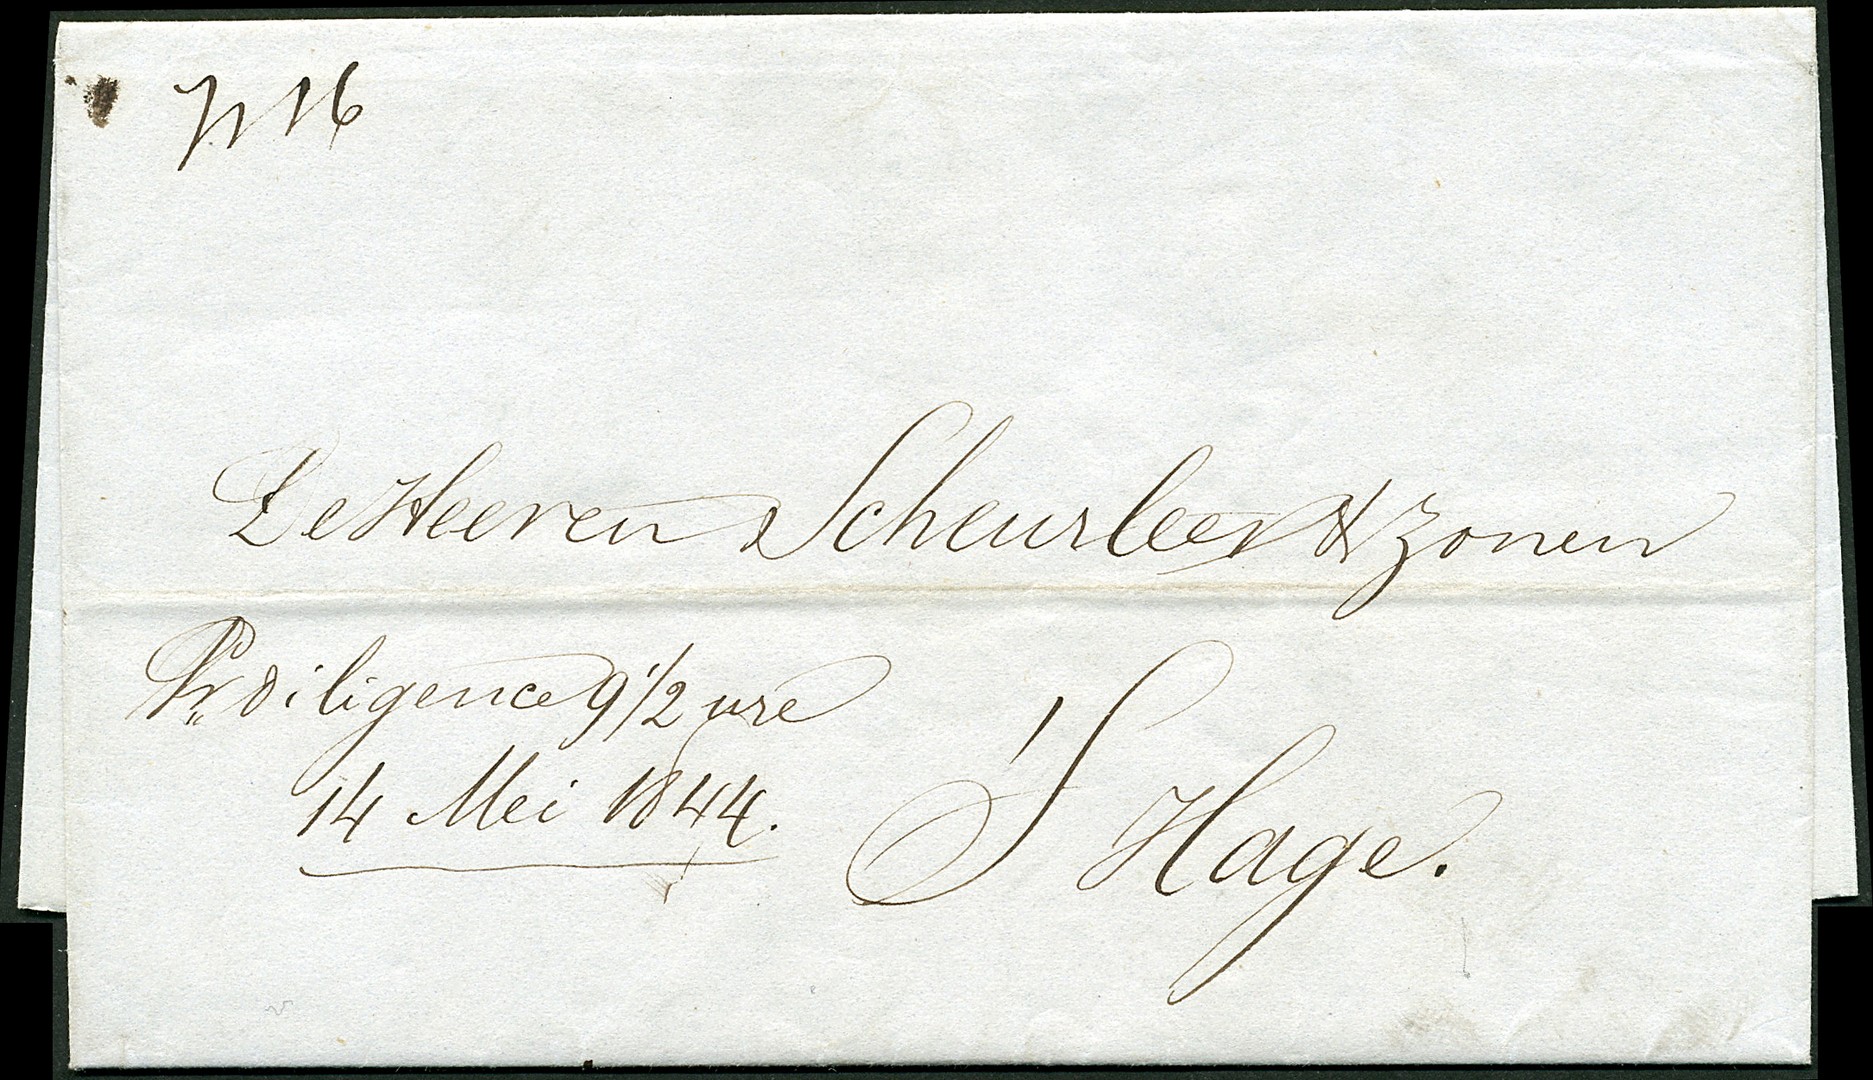 N 16
De Heeren Scheurleer & Zonen
Pr. diligence 9 1/2 ure
14 Mei 1844.
'S Hage.